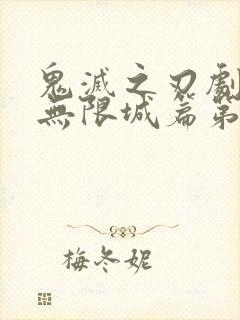 鬼滅之刃劇
無限城篇第
梅冬妮